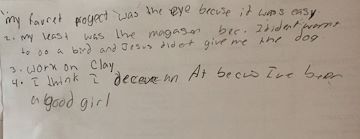 my favret progect was the eye becuse it was easy
2. my least was the magasen bec. I dident wannt
to do a bird and Jesus dident give me the dog
3. work on clay
4. I think I deceve an At becus I've been
a good girl